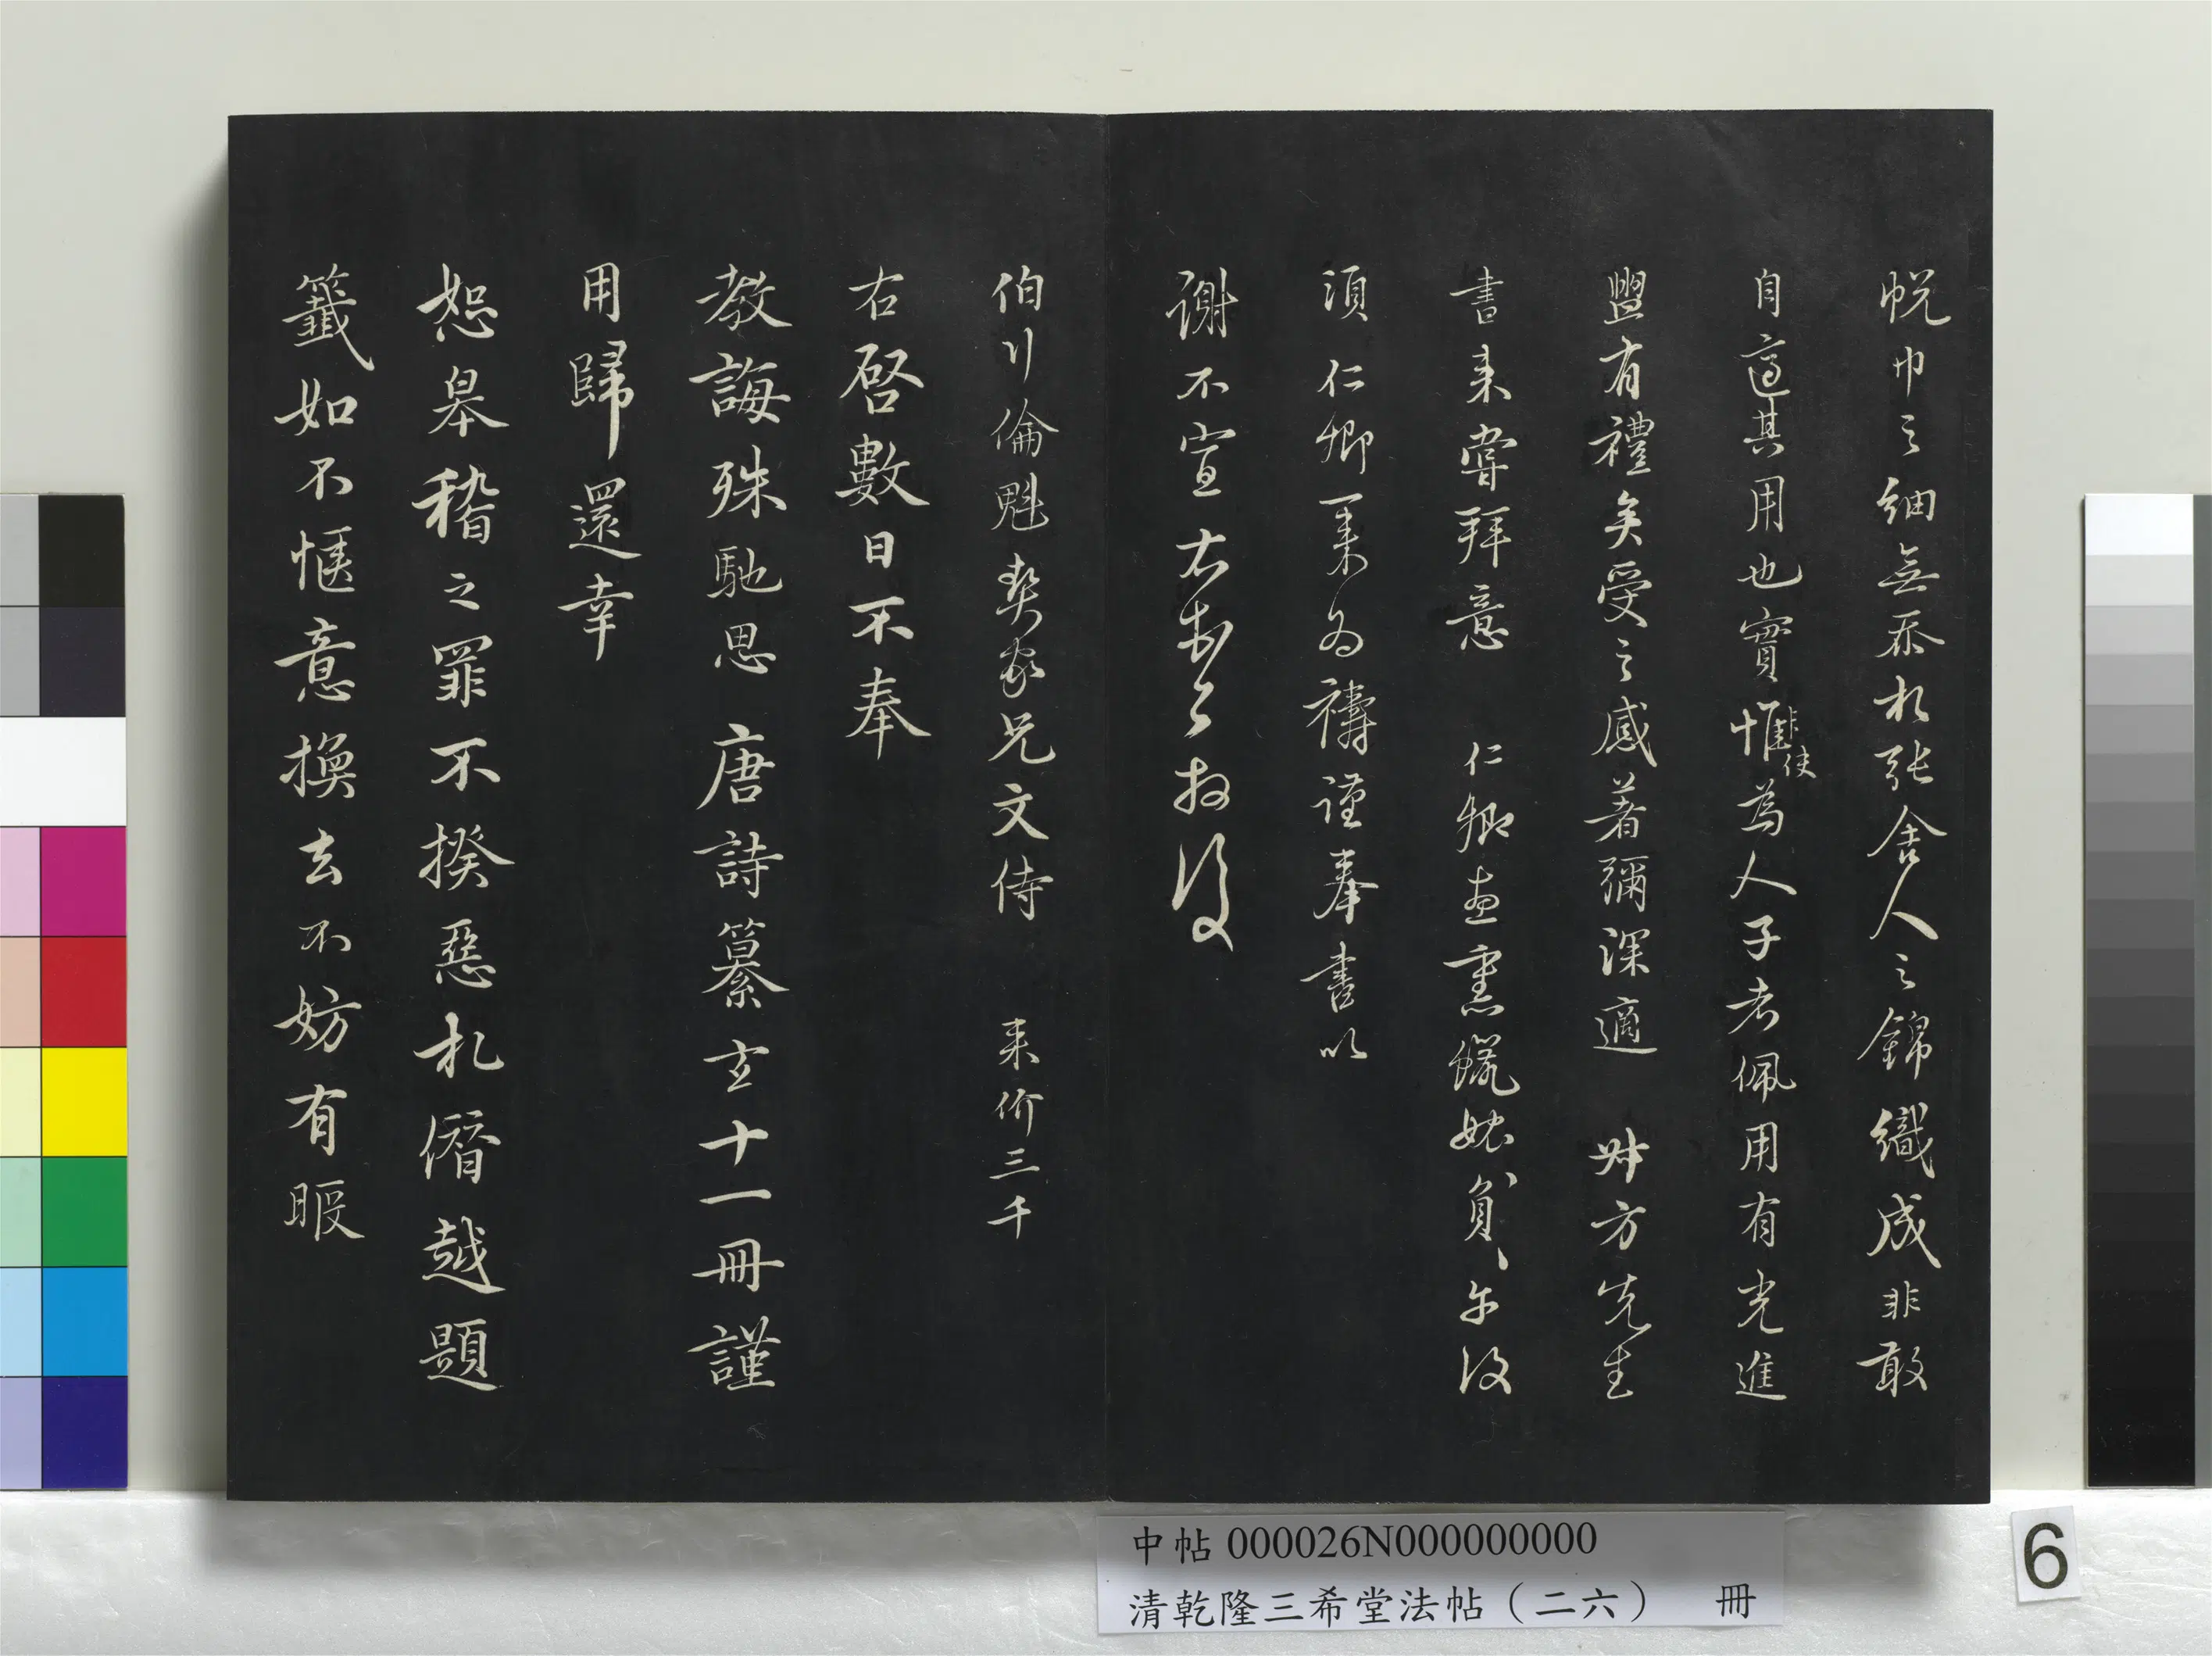 帨巾之細無忝於張舍人之錦織成非敢
自適其用也實惟非使為人子者佩用有光進
盥有禮矣受之感著彌深適 叔方先生
書來嘗拜意 仁卿畫熏蠟姥負負尔後
須 仁卿來為禱謹奉書以
謝不宣右
伯行倫魁契家兄文侍 来价三千
右啓數日不奉
教誨殊馳思 唐詩纂玄十一冊謹
用歸還幸
恕皋稽之罪不揆惡札僭越題
籤如不愜意換去不妨有暇
中帖 000026N000000000
清乾隆三希堂法帖（二六） 冊
6